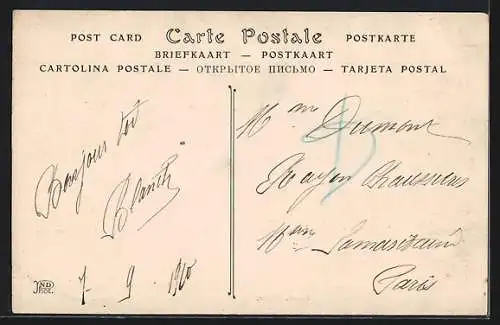 POST CARD Carte Postale POSTKARTE
BRIEFKAART — POSTKAART
CARTOLINA POSTALE — ОТКРЫТОЕ ПИСЬМО — TARJETA POSTAL
Bonjour
7 9 1910
ND
Dumont
Rayon Chaussures
Paris